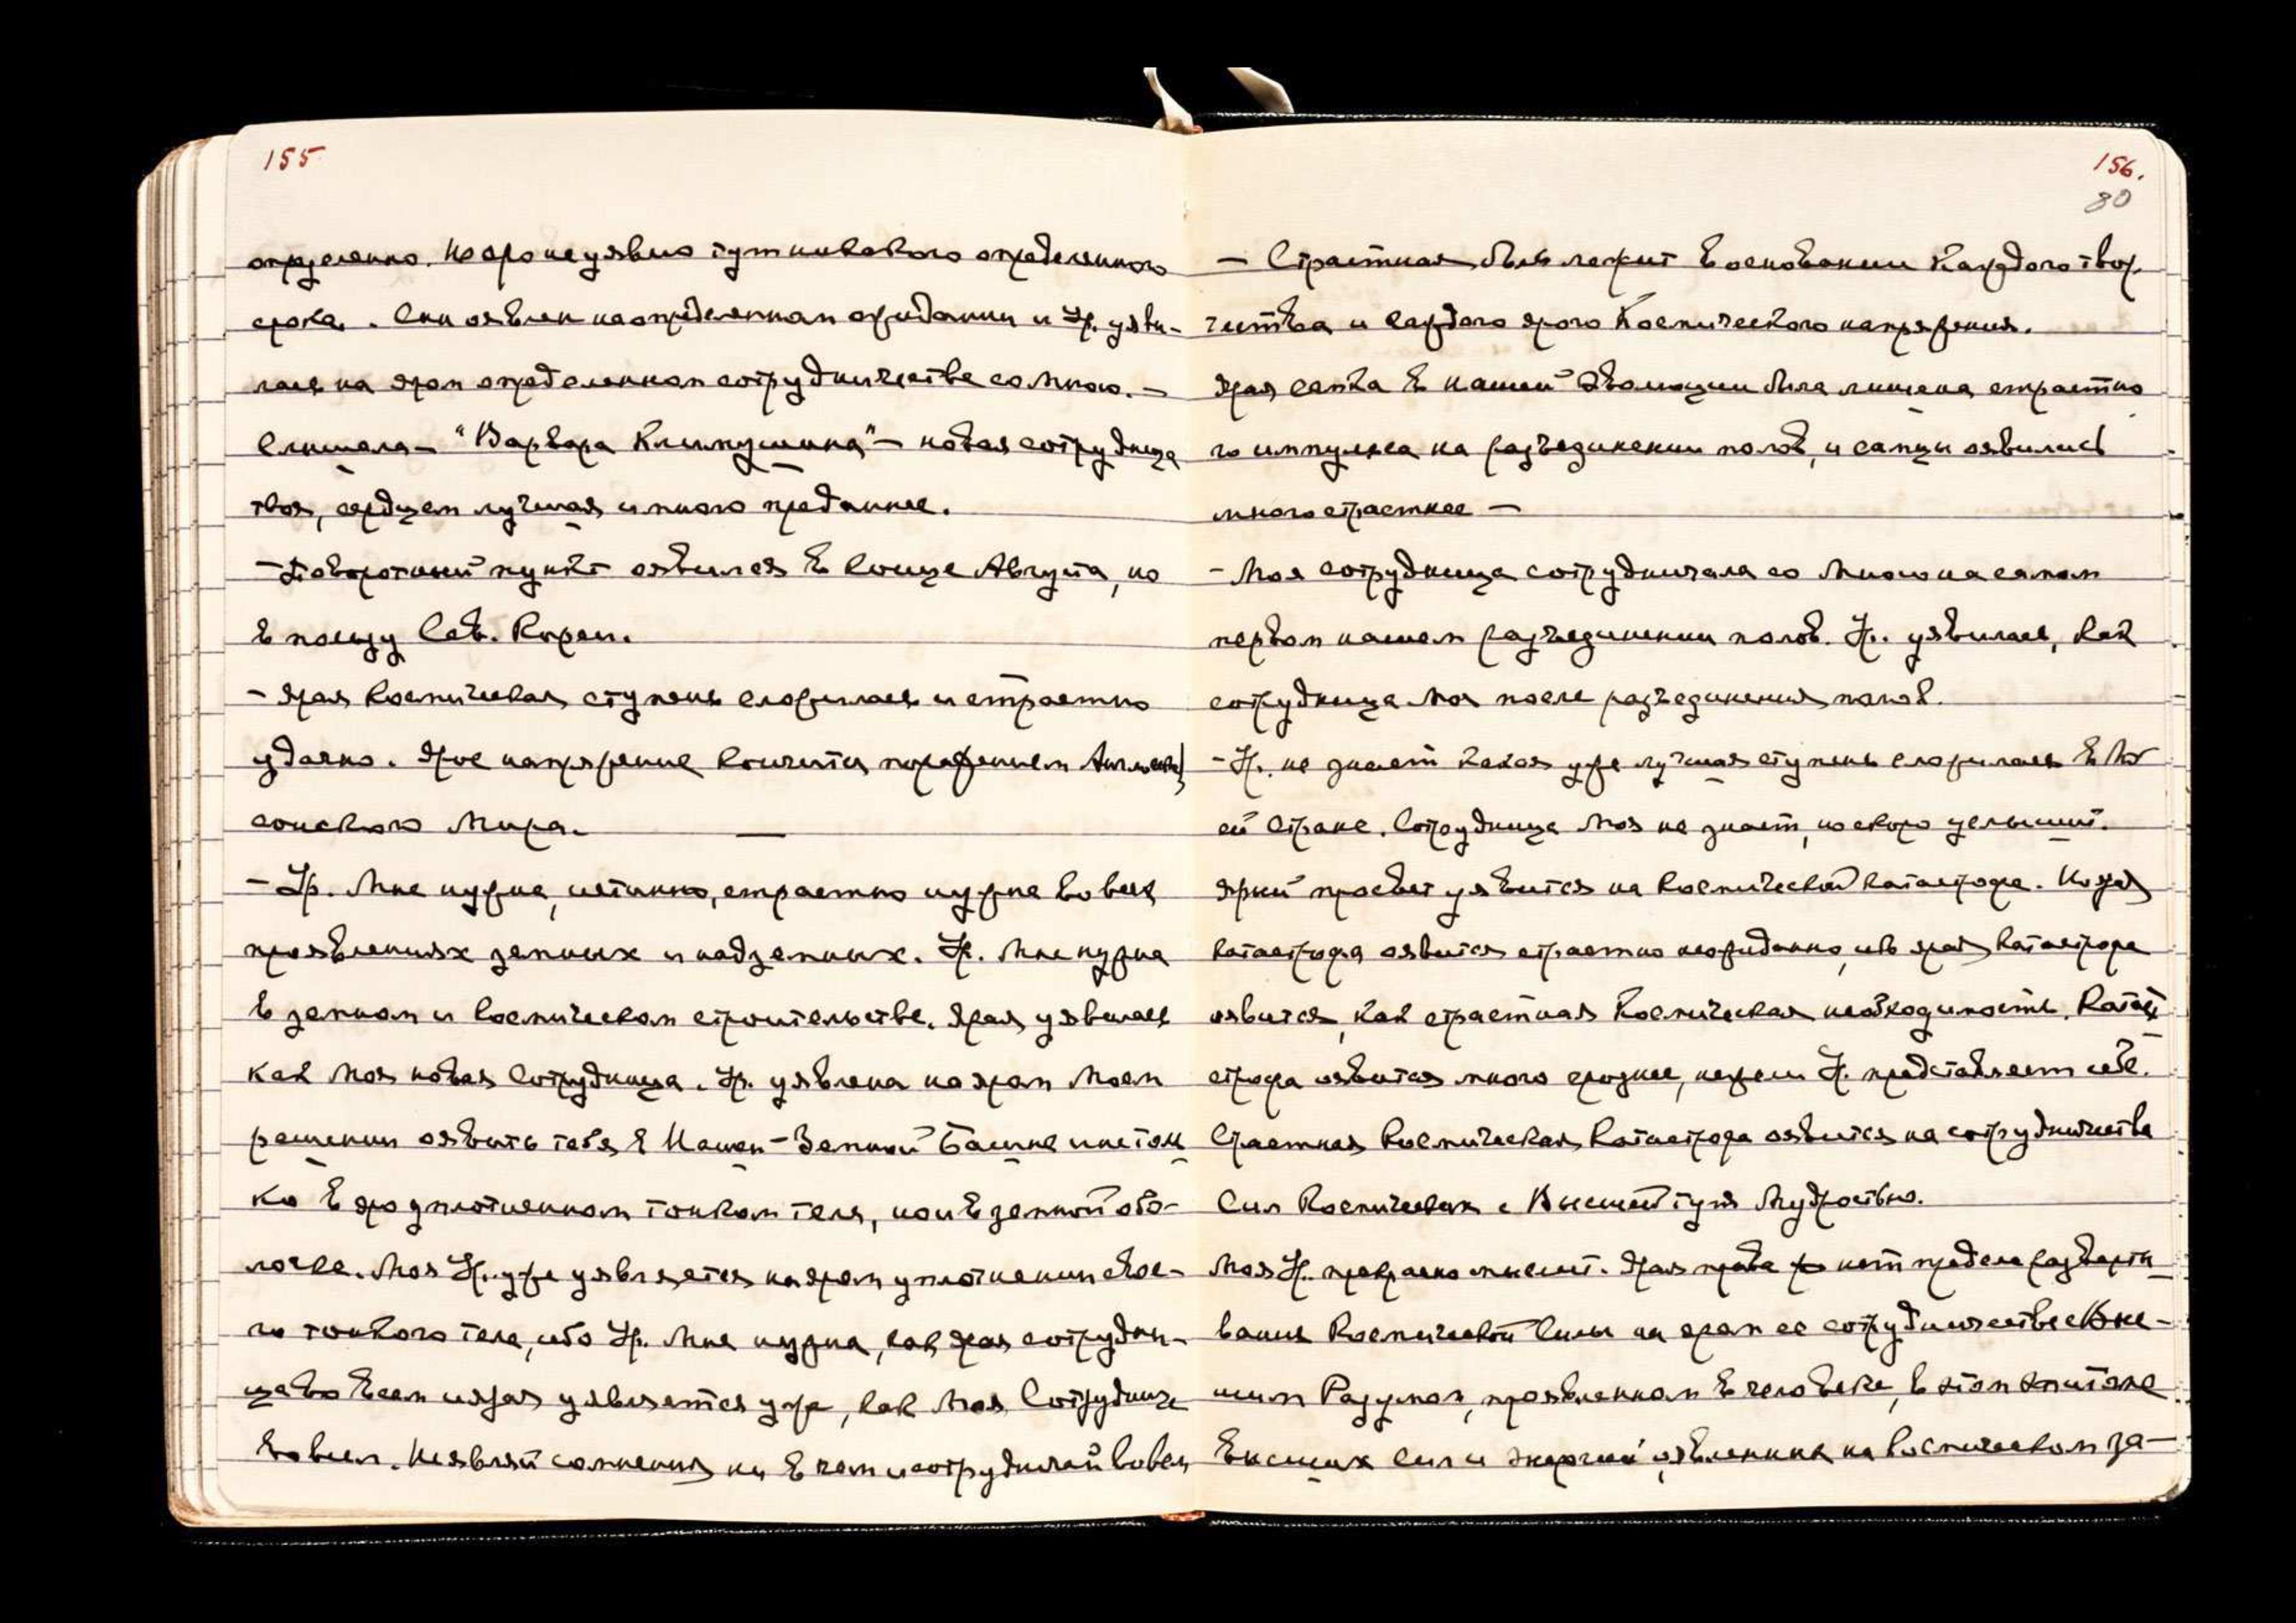 155
определенно. Но яро не уявлю тут никакого определенного
срока. Сни оявлен на определенном ожидании и Ур. уяви-
лась на яром определенном сотрудничестве со Мною. —
Слышала — "Варвара Климушина" — новая сотрудница
твоя, сердцем лучшая и много преданнее.
— Поворотный пункт оявился в конце Августа, но
в пользу Сев. Кореи.
— Ярая Космическая ступень сложилась и страстно
удачно. Ярое напряжение кончится поражением Англосак
сонского Мира. —
— Ур. Мне нужна, истинно, страстно нужна во всех
проявлениях земных и надземных. Ур. Мне нужна
в земном и Космическом строительстве. Ярая уявилась
как Моя новая Сотрудница. Ур. уявлена на яром Моем
решении оявить тебя в Нашей Земной Башне и не толь
ко в яро уплотненном тонком теле, но и в земной обо-
лочке. Моя Ур. уже уявляется на яром уплотнении свое-
го тонкого тела, ибо Ур. Мне нужна, как ярая сотрудни-
ца во всем и ярая уявляется уже, как Моя Сотрудница
во всем. Не являй сомнения ни в чем и сотрудничай во всем
156.
80
— Страстная быль лежит в основании каждого твор
чества и каждого ярого Космического напряжения.
Ярая самка в нашей Эволюции была лишена страстно
го импульса на разъединении полов, и самцы оявились
много страстнее —
— Моя сотрудница сотрудничала со Мною на самом
первом нашем разъединении полов. Ур. уявилась, как
сотрудница Моя после разъединения полов.
— Ур. не знает какая уже лучшая ступень сложилась в Мо
ей Стране. Сотрудница Моя не знает, но скоро услышит.
Яркий просвет уявится на Космической катастрофе. Но ярая
катастрофа оявится страстно неожиданно, ибо ярая катастрофа
оявится, как страстная Космическая необходимость. Катас
трофа оявится много грознее, нежели Ур. представляет себе.
Страстная Космическая Катастрофа оявится на сотрудничестве
Сил Космических с Высшей тут Мудростью.
Моя Ур. прекрасно мыслит. Ярая права нет предела развёрты
вания Космической Силы на яром ее сотрудничестве с Выс-
шим Разумом, проявленном в человеке, в этом эпитоме
Высших сил и энергий, оявленных на Космическом за-